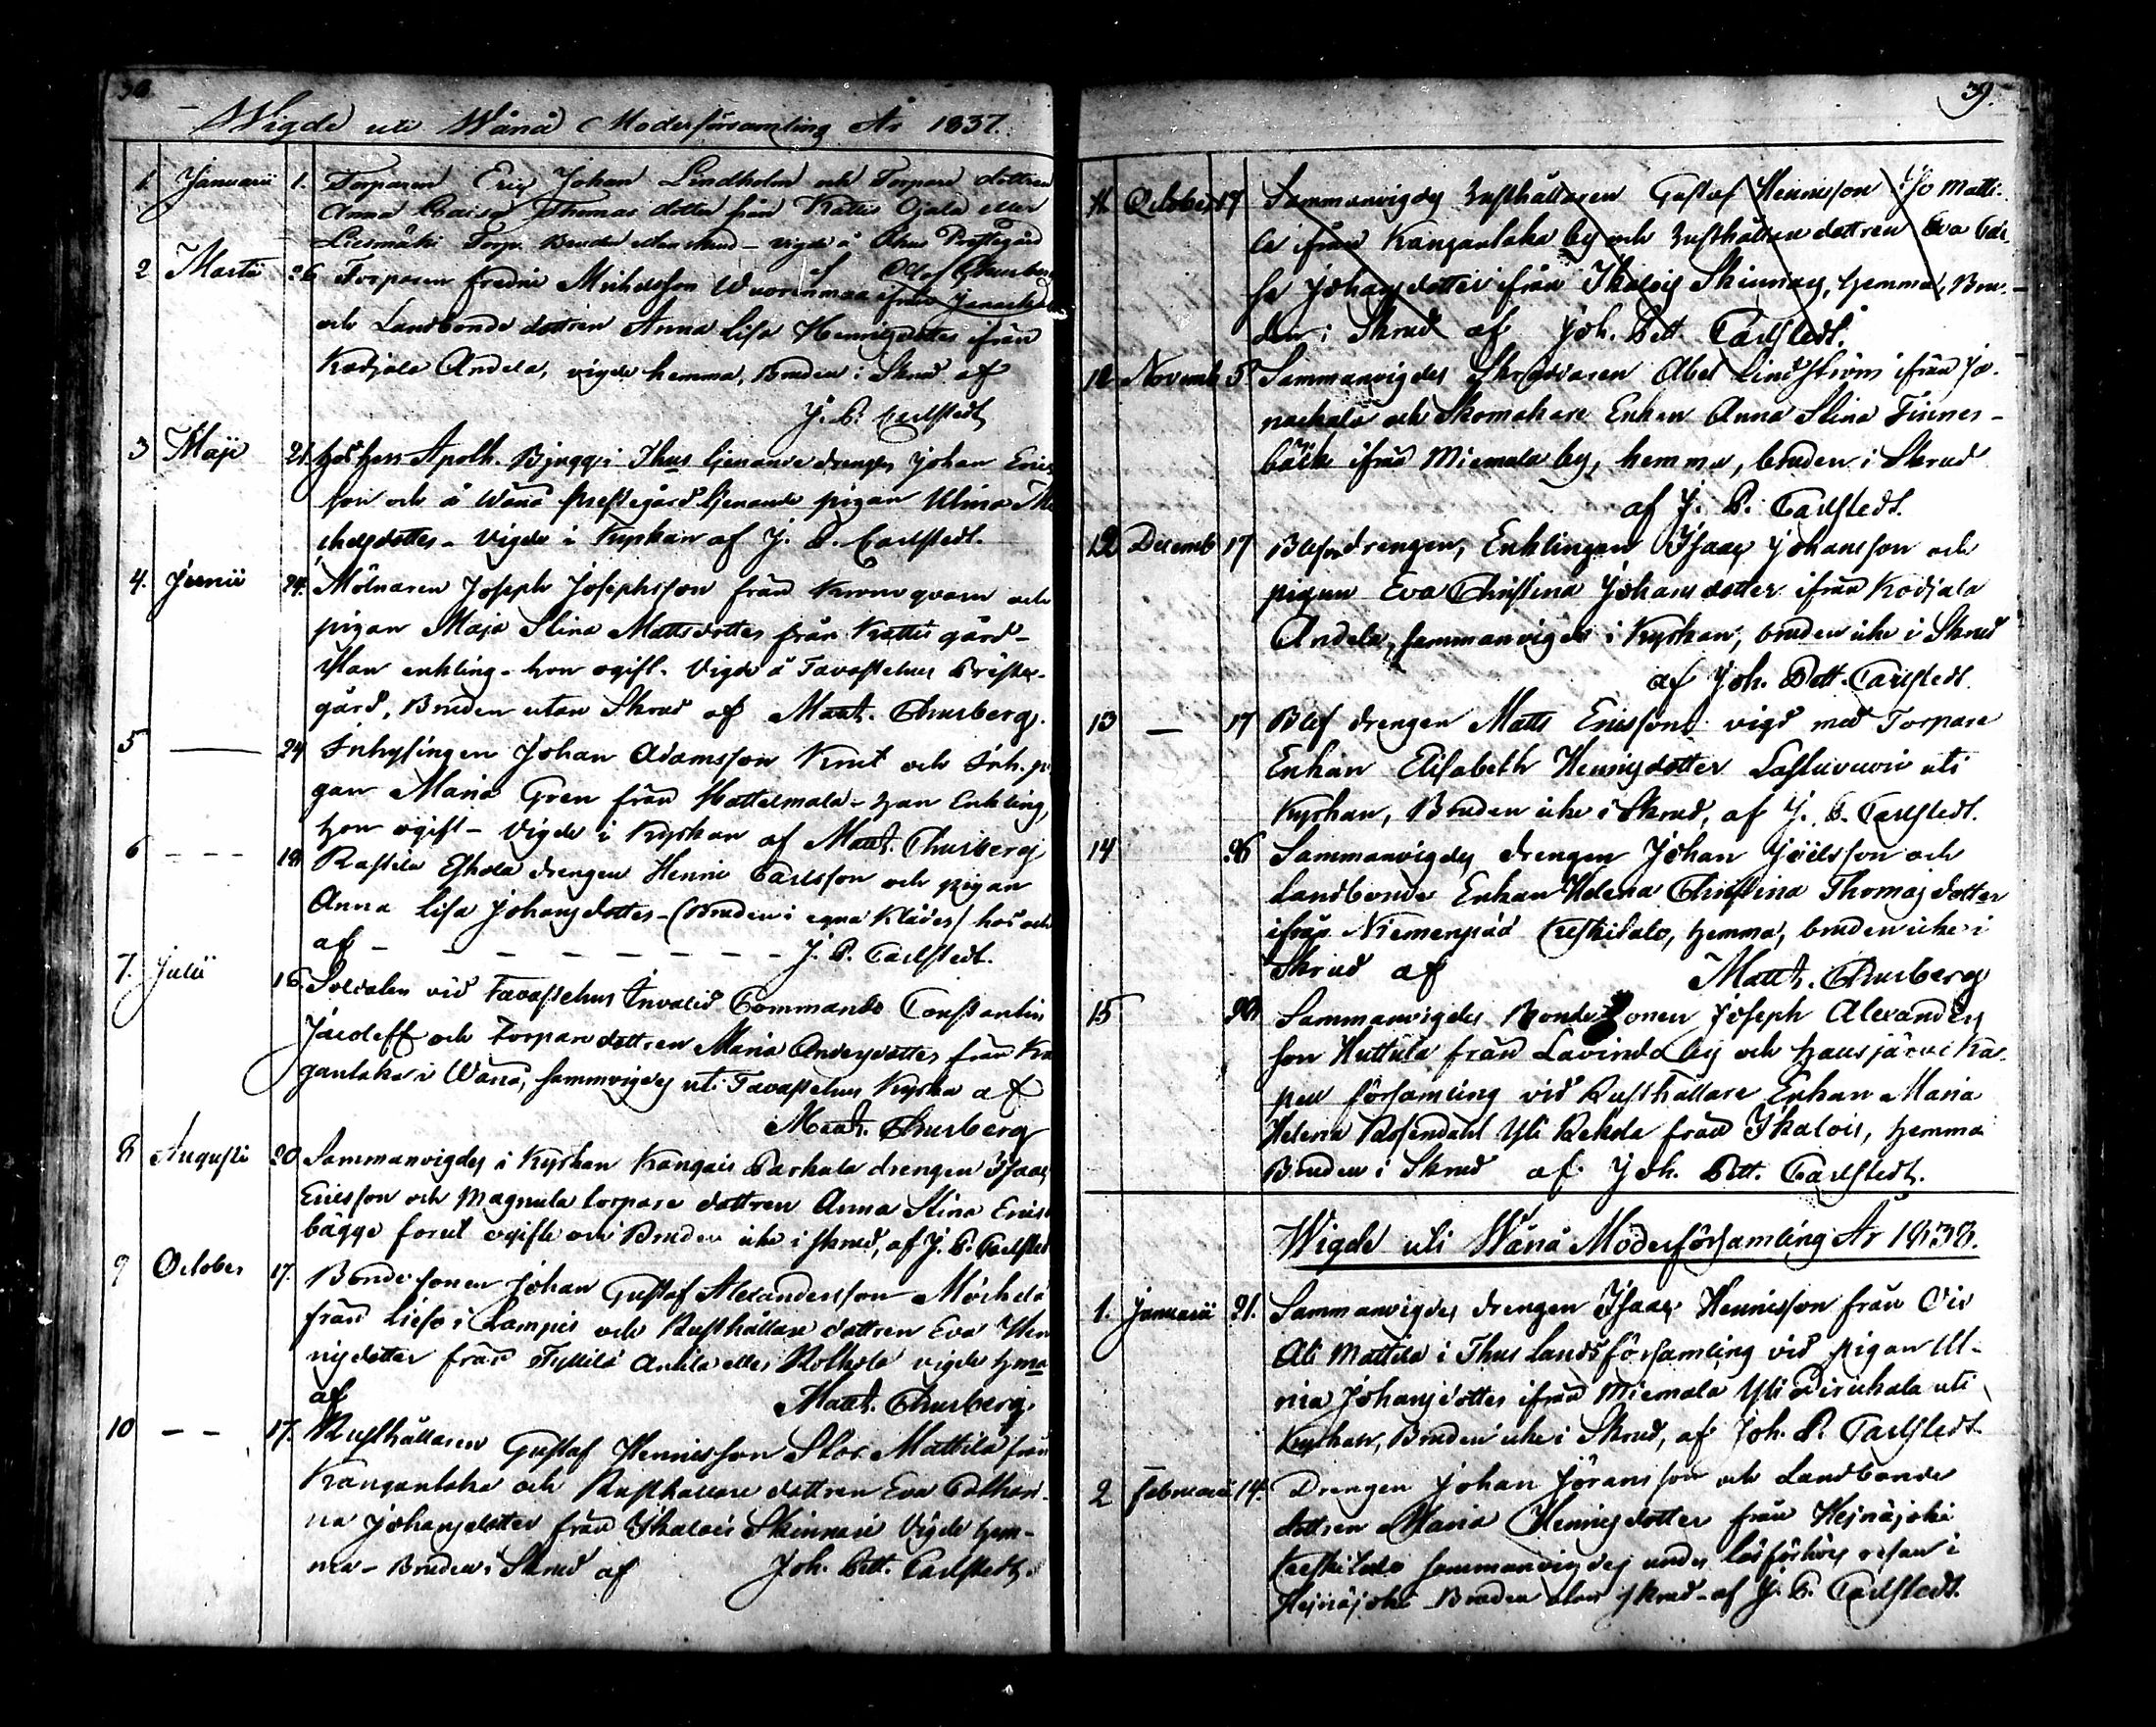 38.
Wigde uti Wånå Moderförsamling År 1837.
1. Januarii 1. Torparen Eric Johan Lindholm och Torpare dottren
Anna Thomas dotter från Kattis Ojala eller
Liesmäki Torp. Bruden utan skrud – vigde å Prestegård
af Thusberg
2 Martii 26 Torparen Fredric Michelsson Wuorenmaa ifrån
och Landbonde dottren Anna Lisa Henricsdotter ifrån
Kodjala Andela, vigde hemma, Bruden i Skrud af
J. P. Carlstedt
3 Maji 21. hos herr Apoth. Bjugg i Thus tjenande drengen Johan Erics
son och å Wånå prestegård tjenande pigan Ulrica Mi
chelsdotter – Vigde i Kyrkan af J. P. Carlstedt.
4. Junii 24. Mölnaren Joseph Josephsson från Krono qvarn och
pigan Maja Stina Mattsdotter från Kattis gård –
Han enkling – hon ogift. Vigde å Tavastehus Preste-
gård, Bruden utan Skrud af Matth. Thusberg.
5 — 24 Inhysingen Johan Adamsson Knut och Inh. pi
gan Maria Gren från Hattelmala – han Enkling,
hon ogift – Vigde i Kyrkan af Matth. Thusberg
6 – – – 18 Rastila Eskola drengen Henric Carlsson och pigan
Anna Lisa Johansdotter – (Bruden i egna Kläder) hos och
af – – – – – – – – J. P. Carlstedt.
7. Julii 16. Soldaten vid Tavastehus Invalid Commando Constantin
Jacoleff och Torpare dottren Maria Andersdotter från Kan
ganlaka i Wånå, sammvigdes uti Tavastehus Kyrka af
Matth. Thusberg
8 Augusti 20 Sammanvigdes i Kyrkan Kangais Parkala drengen Isaac
Ericsson och Magnula torpare dottren Anna Stina Erics
bägge forut ogifte och Bruden icke i skrud, af J. P. Carlstedt
9 October 17. Bonde sonen Johan Gustaf Alexandersson
från Lieso i Lampis och Rusthållare dottren Eva Hen
ricsdotter från Tyllilä Anttila eller Rolhola vigde hema
af Matth. Thusberg.
10 – – 17. Rusthållaren Gustaf Henricsson Stor Mattila från
Kanganlaka och Rusthållare dottren Eva Cathari-
na Johansdotter från Ikalois Skinnari Vigde hem-
ma – Bruden i Skrud af Joh. Pett. Carlstedt.
39.
11 October 17 Sammanvigdes Rusthållaren Gustaf Henricsson Iso Matti-
la ifrån Kanganlaka by och Rusthållare dottren Eva Cai-
sa Johansdotter ifrån Ikalois Skinnary, hemma, Bru-
den i Skrud af Joh. Pett. Carlstedt.
12 Novemb 5 Sammanvigdes Skräddaren Abel Lindström ifrån Ja-
nackala och Skomakare Enkan Anna Stina Finner-
bäck ifrån Miemala by, hemma, bruden i Skrud
af J. P. Carlstedt.
12 Decemb 17 drengen, Enklingen Isaac Johansson och
pigan Eva Christina Johansdotter ifrån Kodjala
Andela, sammanvigde i Kyrkan, bruden icke i Skrud
af Joh. Pett. Carlstedt.
13 — 17 drengen Matts Ericsson vigd med Torpare
Enkan Elisabeth Henricsdotter uti
Kyrkan, Bruden icke i Skrud, af J. P. Carlstedt.
14 26 Sammanvigdes drengen Johan Joëlsson och
Landbonde Enkan Helena Christina Thomasdotter
ifrån Niemenpää Keskitalo, hemma, bruden icke i
Skrud af Matth. Thusberg
15 Sammanvigdes Bonde Sonen Joseph Alexanders
son Huttula från Lavinda by och Hausjärvi Ka-
pell församling vid Rusthållare Enkan Maria
Helena Rosendahl Yli Rekola från Ikalois, hemma
Bruden i Skrud af Joh. Pett. Carlstedt.
Wigde uti Wånå Moderförsamling År 1838.
1. Januarii 21. Sammanvigdes drengen Isaac Henricsson från
Ali Mattila i Thus Landsförsamling vid pigan Ul-
rica Johansdotter ifrån Miemala Yli Pirickala uti
Kyrkan, Bruden icke i Skrud, af Joh. P. Carlstedt.
2 Februarii 14. Drengen Johan Göransson och Landbonde
dottren Maria Henricsdotter från Hejnäjoki
Keskitalo sammanvigdes under läsförhörs resan i
Hejnäjoki – Bruden utan skrud – af J. P. Carlstedt.